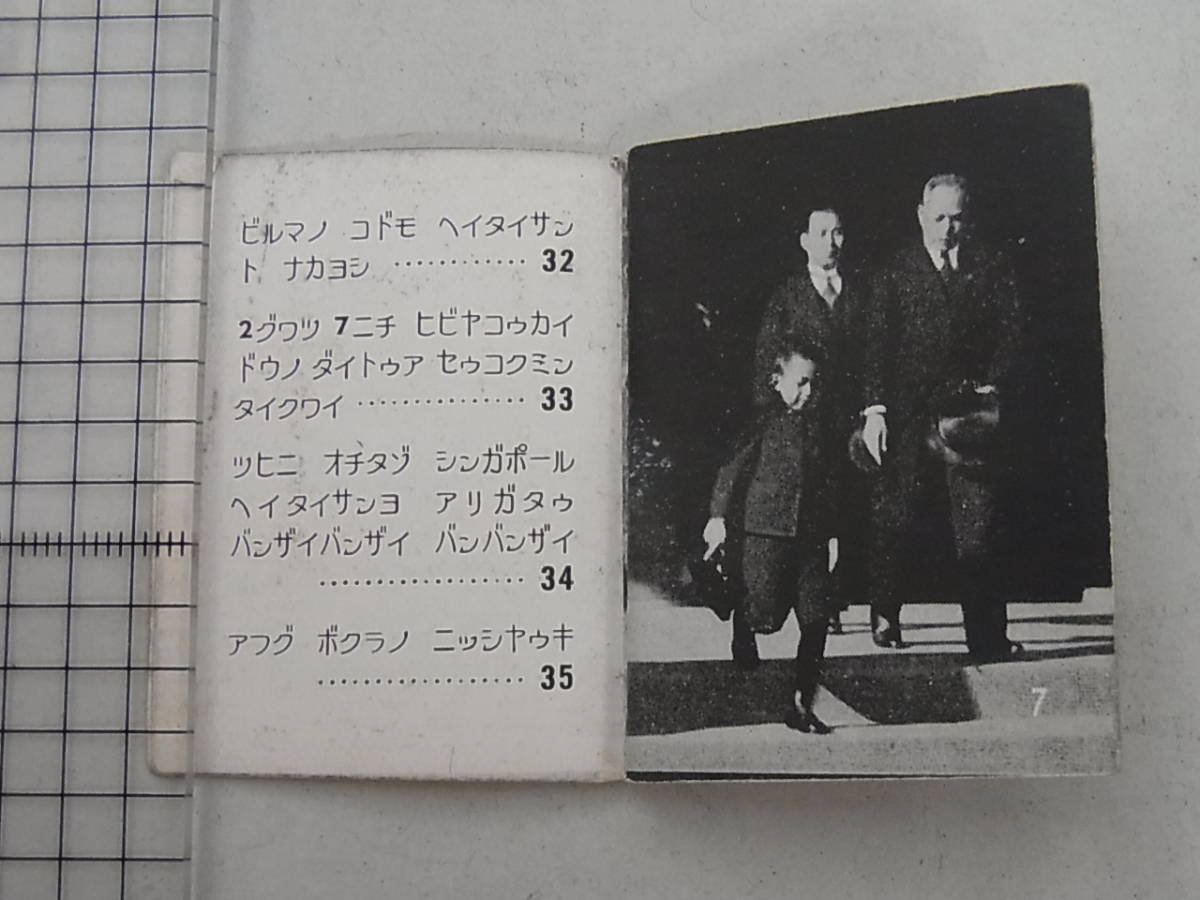 ビルマノ コドモ ヘイタイサン
ト ナカヨシ ………… 32
2グワツ 7ニチ ヒビヤコゥカイ
ドウノ ダイトゥア セゥコクミン
タイクワイ …………… 33
ツヒニ オチタゾ シンガポール
ヘイタイサンヨ アリガタゥ
バンザイバンザイ バンバンザイ
……………… 34
アフグ ボクラノ ニッシヤゥキ
……………… 35
7